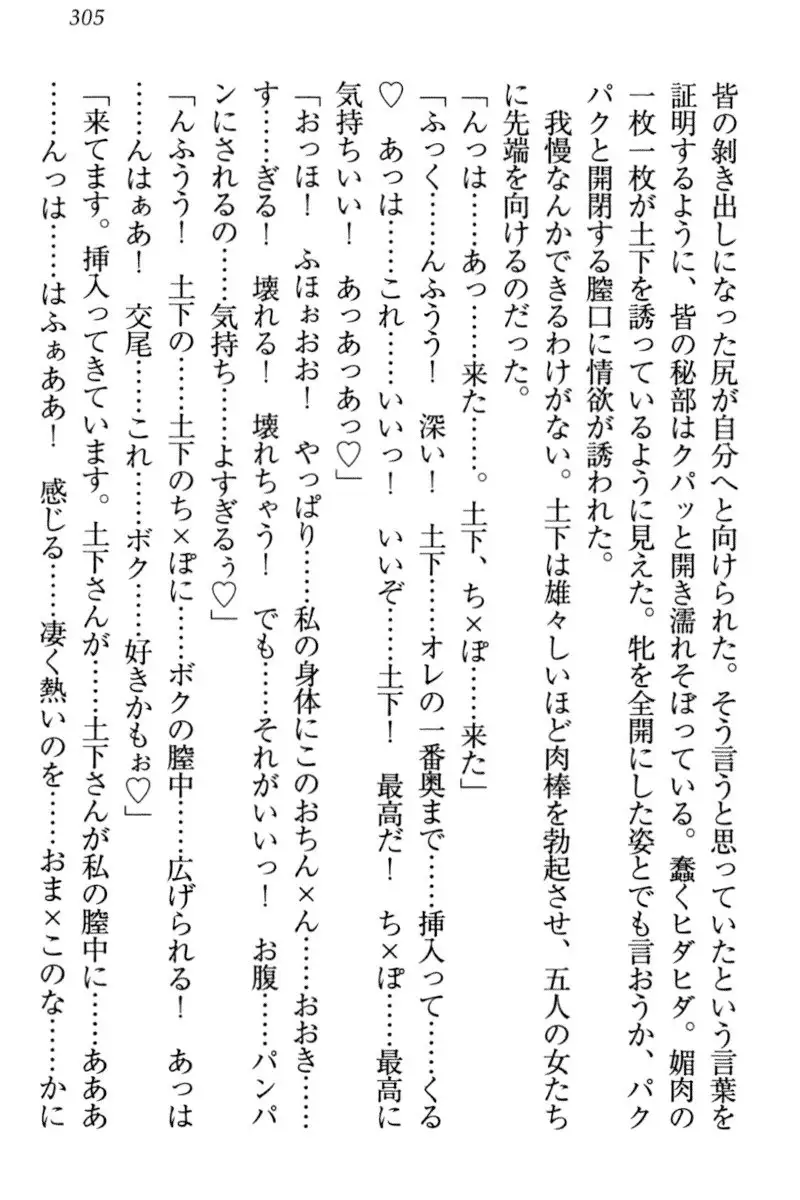 305
皆の剝き出しになった尻が自分へと向けられた。そう言うと思っていたという言葉を
証明するように、皆の秘部はクパッと開き濡れそぼっている。蠢くヒダヒダ。媚肉の
一枚一枚が土下を誘っているように見えた。牝を全開にした姿とでも言おうか、パク
パクと開閉する膣口に情欲が誘われた。
　我慢なんかできるわけがない。土下は雄々しいほど肉棒を勃起させ、五人の女たち
に先端を向けるのだった。
「んっは……あっ……来た……。土下、ち×ぽ……来た」
「ふっく……んふうう！　深い！　土下……オレの一番奥まで……挿入って……くる
♡　あっは……これ……いいっ！　いいぞ……土下！　最高だ！　ち×ぽ……最高に
気持ちいい！　あっあっあっ♡」
「おっほ！　ふほぉおお！　やっぱり……私の身体にこのおちん×ん……おおき……
す……ぎる！　壊れる！　壊れちゃう！　でも……それがいいっ！　お腹……パンパ
ンにされるの……気持ち……よすぎるぅ♡」
「んふうう！　土下の……土下のち×ぽに……ボクの膣中……広げられる！　あっは
……んはぁあ！　交尾……これ……ボク……好きかもぉ♡」
「来てます。挿入ってきています。土下さんが……土下さんが私の膣中に……あああ
……んっは……はふぁああ！　感じる……凄く熱いのを……おま×このな……かに